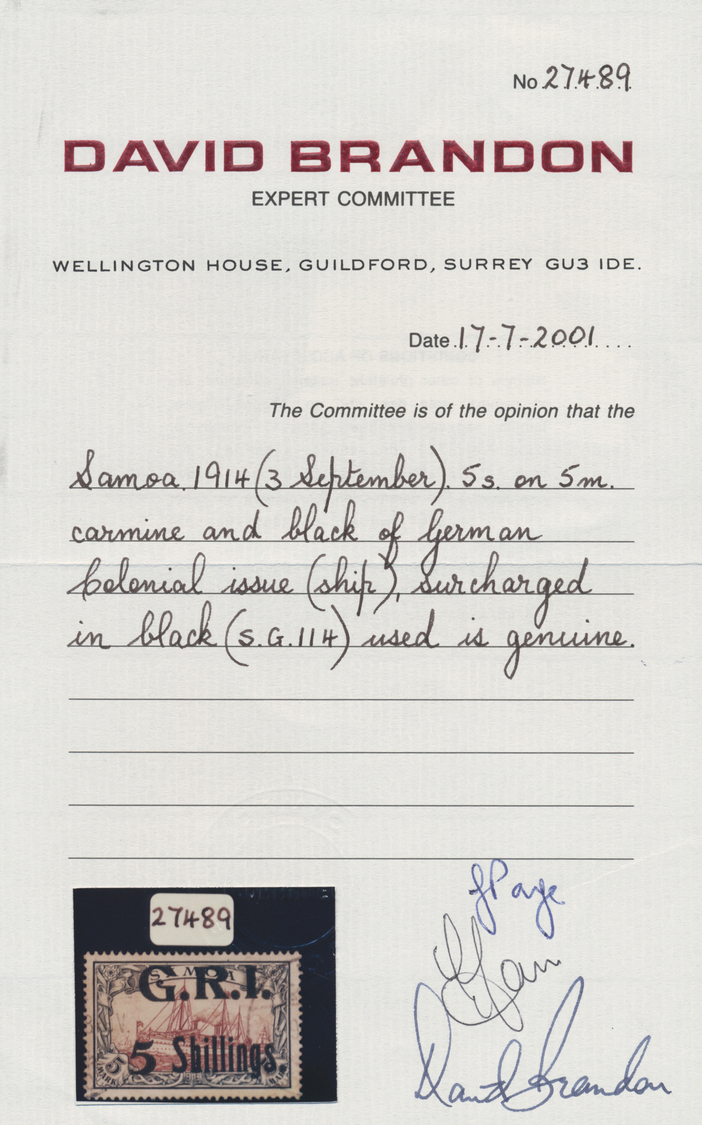 No 27489
DAVID BRANDON
EXPERT COMMITTEE
WELLINGTON HOUSE, GUILDFORD, SURREY GU3 IDE.
Date 17-7-2001
The Committee is of the opinion that the
Samoa 1914 (3 September). 5s. on 5m.
carmine and black of German
Colonial issue (ship), surcharged
in black (S.G.114) used is genuine.
27489
SAMOA
G.R.I.
5 Shillings
David Brandon